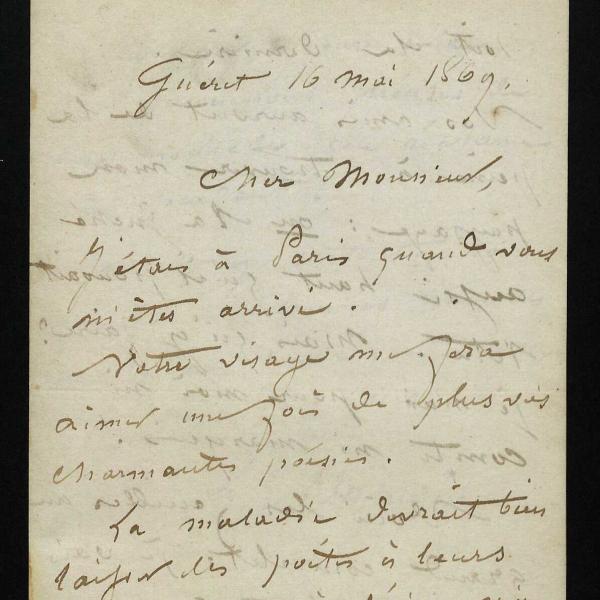 Guéret 16 mai 1869.
Cher Monsieur,
J'étais à Paris quand vous
m'êtes arrivé.
Votre visage me fera
aimer une fois de plus vos
charmantes poésies.
La maladie devrait bien
laisser les poètes à leurs